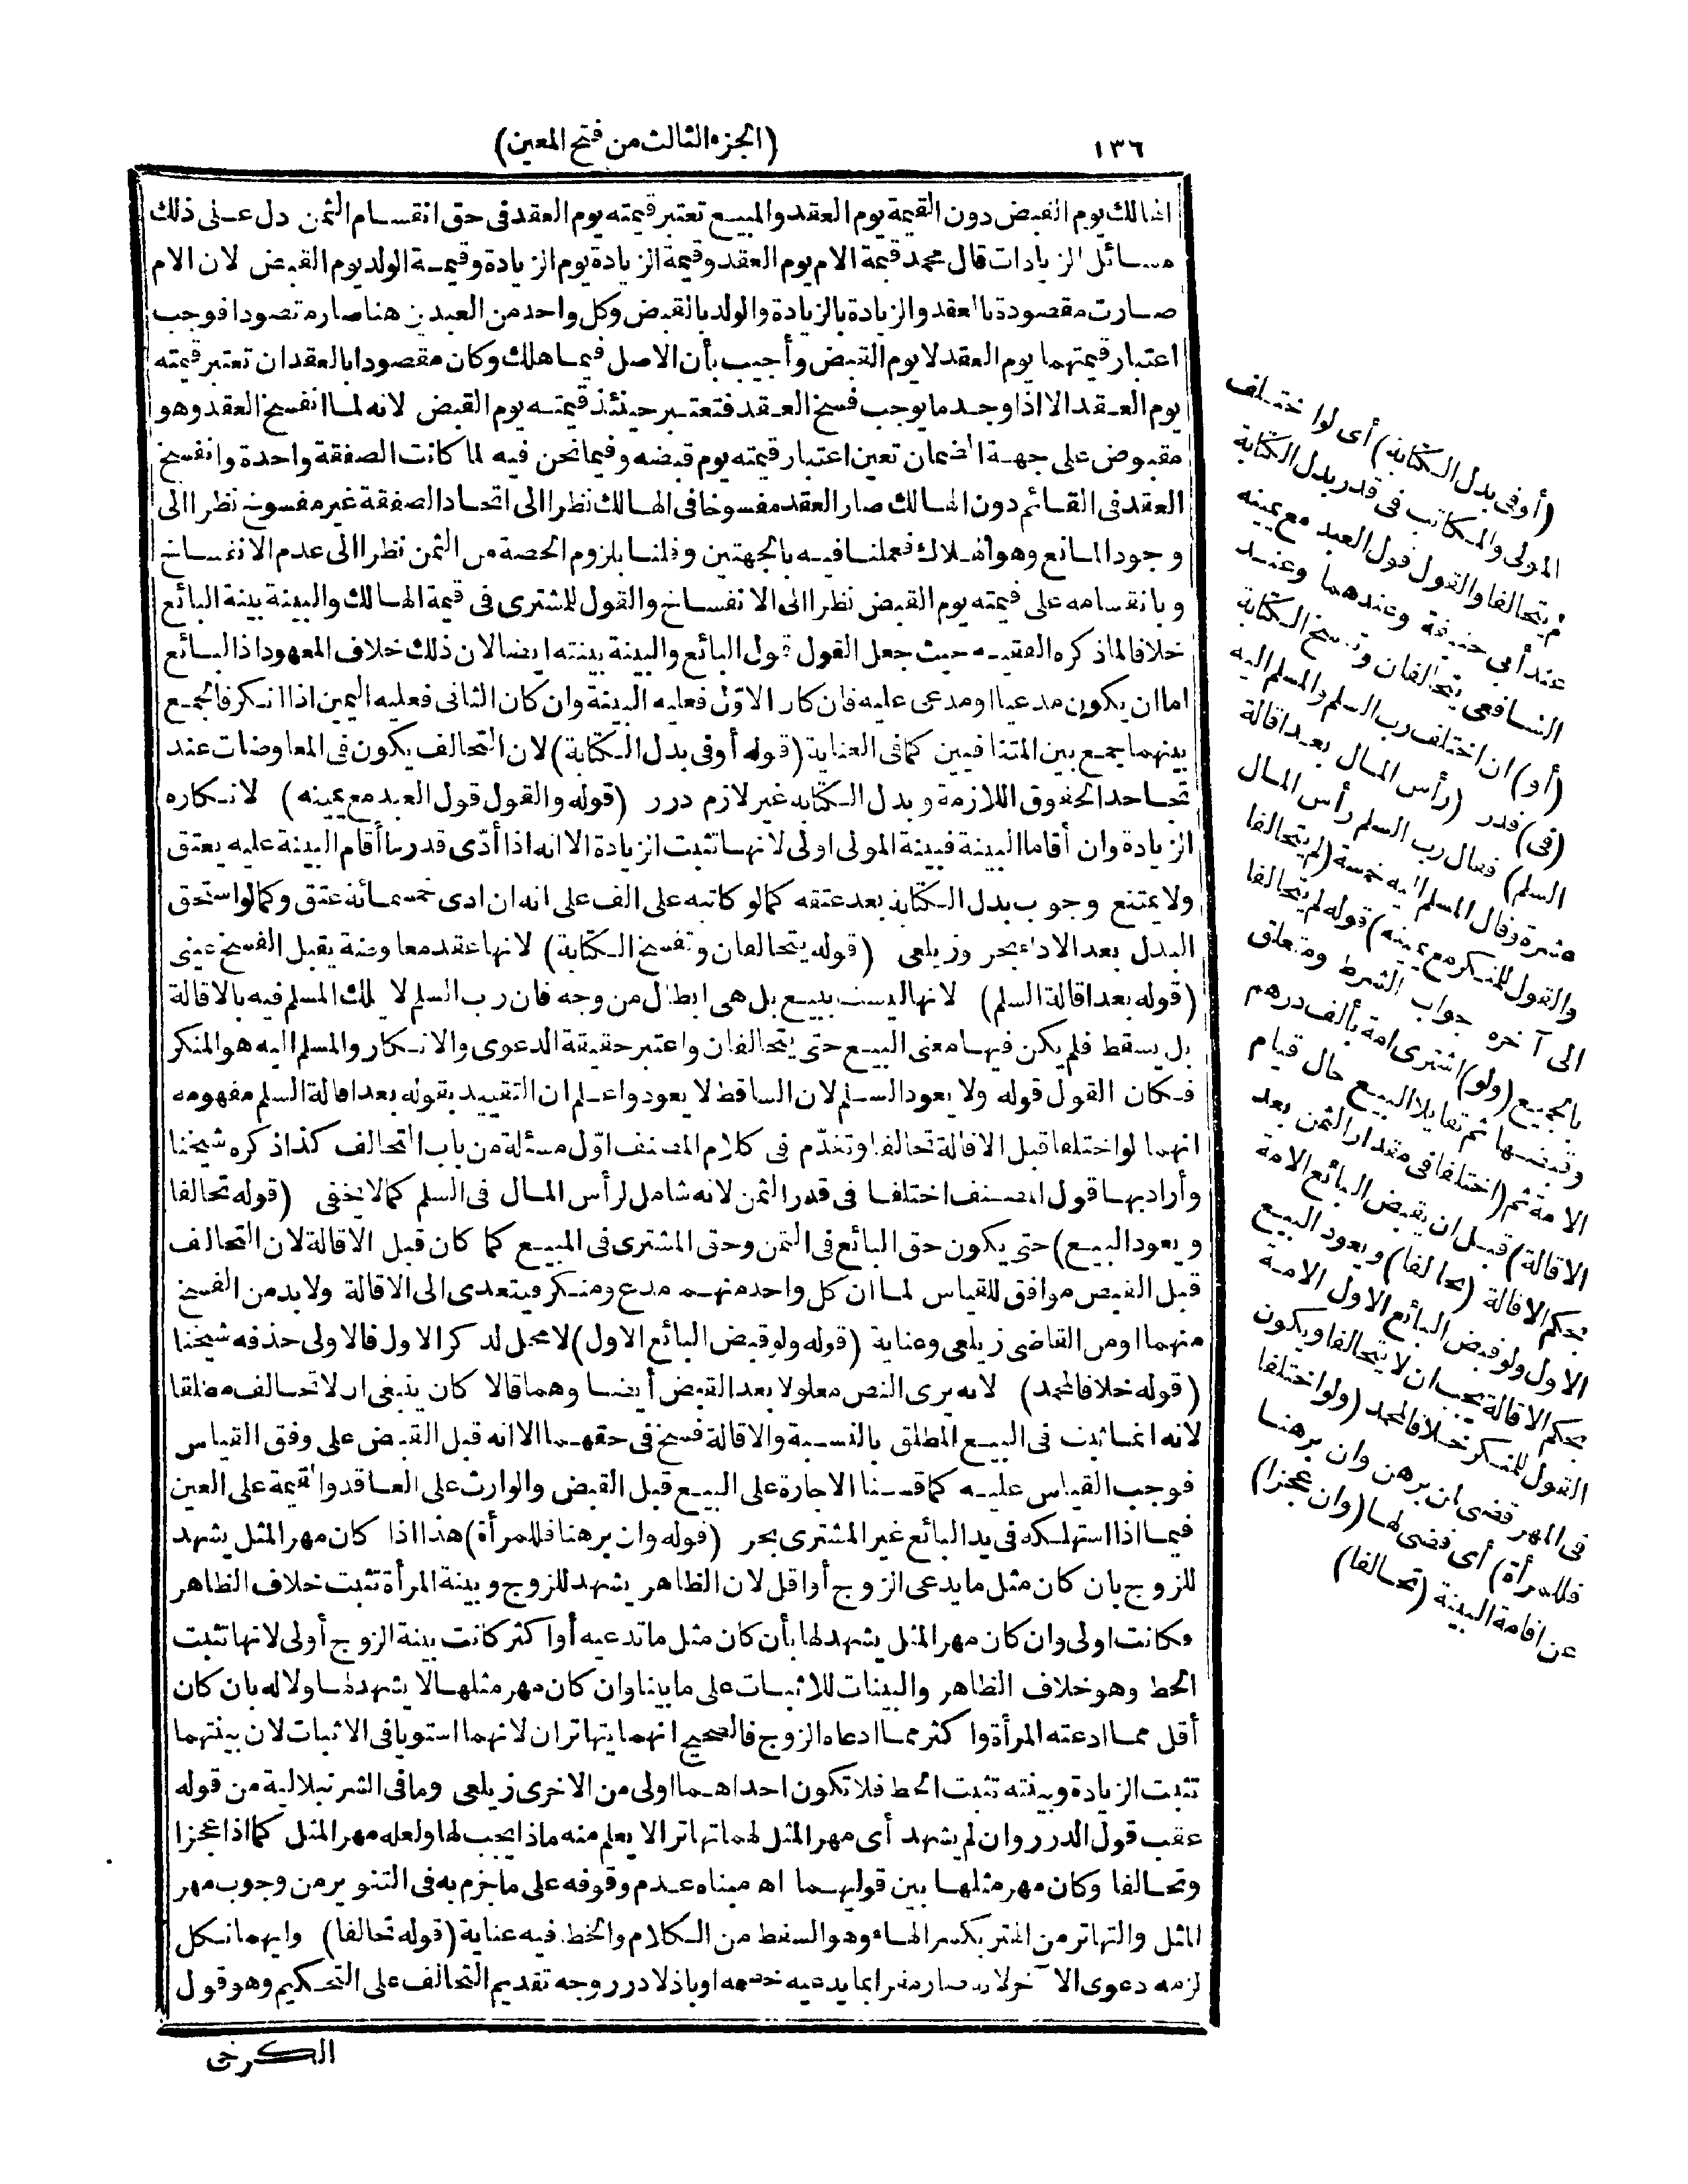 ١٣٦
(الجزء الثالث من فتح المعين)
الهالك يوم القبض دون القيمة يوم العقد والمبيع تعتبر قيمته يوم العقد فى حق انقسام الثمن دل على ذلك
مسائل الزيادات قال محمد قيمة الام يوم العقد وقيمة الزيادة يوم الزيادة وقيمة الولد يوم القبض لان الام
صارت مقصودة بالعقد والزيادة بالزيادة والولد بالقبض وكل واحد من العبدين هنا صار مقصودا فوجب
اعتبار قيمتهما يوم العقد لا يوم القبض وأجيب بأن الاصل فيما هلك وكان مقصودا بالعقد ان تعتبر قيمته
يوم العقد الا اذا وجد ما يوجب فسخ العقد فتعتبر حينئذ قيمته يوم القبض لانه لما انفسخ العقد وهو
مقبوض على جهة الضمان تعين اعتبار قيمته يوم قبضه وفيما نحن فيه لما كانت الصفقة واحدة وانفسخ
العقد فى القائم دون الهالك صار العقد مفسوخا فى الهالك نظرا الى اتحاد الصفقة غير مفسوخ نظرا الى
وجود المانع وهو الهلاك فعملنا فيه بالجهتين وقلنا بلزوم الحصة من الثمن نظرا الى عدم الانفساخ
وبانقسامه على قيمته يوم القبض نظرا الى الانفساخ والقول للمشترى فى قيمة الهالك والبينة بينة البائع
خلافا لما ذكره الفقيه حيث جعل القول قول البائع والبينة بينته ايضا لان ذلك خلاف المعهود اذ البائع
اما ان يكون مدعيا او مدعى عليه فان كان الاوّل فعليه البينة وان كان الثانى فعليه اليمين اذا انكر فالجمع
بينهما يجمع بين المتنافيين كما فى العناية (قوله أو فى بدل الكتابة) لان التحالف يكون فى المعاوضات عند
تجاحد الحقوق اللازمة وبدل الكتابة غير لازم درر (قوله والقول قول العبد مع يمينه) لانكاره
الزيادة وان أقاما البينة فبينة المولى اولى لانها تثبت الزيادة الا انه اذا أدّى قدر ما أقام البينة عليه يعتق
ولا يمتنع وجوب بدل الكتابة بعد عتقه كما لو كاتبه على الف على انه ان ادى خمسمائة عتق وكما لو استحق
البدل بعد الاداء بحر وزيلعى (قوله يتحالفان وتفسخ الكتابة) لانها عقد معاوضة يقبل الفسخ عينى
(قوله بعد اقالة السلم) لانها ليست ببيع بل هى ابطال من وجه فان رب السلم لا يملك المسلم فيه بالاقالة
بل يسقط فلم يكن فيها معنى البيع حتى يتحالفان واعتبر حقيقة الدعوى والانكار والمسلم اليه هو المنكر
فكان القول قوله ولا يعود السلم لان الساقط لا يعود واعلم ان التقييد بقوله بعد اقالة السلم مفهومه
انهما لو اختلفا قبل الاقالة تحالفا وتقدّم فى كلام المصنف اوّل مسئلة من باب التحالف كذا ذكره شيخنا
وأراد بها قول المصنف اختلفا فى قدر الثمن لانه شامل لرأس المال فى السلم كما لا يخفى (قوله تحالفا
ويعود البيع) حتى يكون حق البائع فى الثمن وحق المشترى فى المبيع كما كان قبل الاقالة لان التحالف
قبل القبض موافق للقياس لما ان كل واحد منهما مدع ومنكر فيتعدى الى الاقالة ولا بد من الفسخ
منهما او من القاضى زيلعى وعناية (قوله ولو قبض البائع الاول) لا محل لذكر الاول فالاولى حذفه شيخنا
(قوله خلافا لمحمد) لانه يرى النص معلولا بعد القبض أيضا وهما قالا كان ينبغى ان لا تحالف مطلقا
لانه انما ثبت فى البيع المطلق بالنسبة والاقالة فسخ فى حقهما الا انه قبل القبض على وفق القياس
فوجب القياس عليه كما قسنا الاجارة على البيع قبل القبض والوارث على العاقد والقيمة على العين
فيما اذا استهلكه فى يد البائع غير المشترى بحر (قوله وان برهنا فللمرأة) هذا اذا كان مهر المثل يشهد
للزوج بان كان مثل ما يدعى الزوج أو اقل لان الظاهر يشهد للزوج وبينة المرأة تثبت خلاف الظاهر
فكانت اولى وان كان مهر المثل يشهد لها بأن كان مثل ما تدعيه أو اكثر كانت بينة الزوج أولى لانها تثبت
الحط وهو خلاف الظاهر والبينات للاثبات على ما بينا وان كان مهر مثلها لا يشهد لها ولا له بان كان
أقل مما ادعته المرأة واكثر مما ادعاه الزوج فالصحيح انهما يتهاتران لانهما استويا فى الاثبات لان بينتهما
تثبت الزيادة وبينته تثبت الحط فلا تكون احداهما اولى من الاخرى زيلعى وما فى الشرنبلالية من قوله
عقب قول الدرر وان لم يشهد أى مهر المثل لهما تهاترا لا يعلم منه ماذا يجب لها ولعله مهر المثل كما اذا عجزا
وتحالفا وكان مهر مثلها بين قوليهما اه مبناه عدم وقوفه على ما جزم به فى التنوير من وجوب مهر
المثل والتهاتر من الهتر بكسر الهاء وهو السقط من الكلام والخطا فيه عناية (قوله تحالفا) وايهما نكل
لزمه دعوى الآخر لانه صار مقرا بما يدعيه خصمه او باذلا درر وجه تقديم التحالف على التحكيم وهو قول
الكرخى
(أو فى بدل الكتابة) أى لو اختلف
المولى والمكاتب فى قدر بدل الكتابة
لم يتحالفا والقول قول العبد مع يمينه
عند أبى حنيفة وعندهما وعند
الشافعى يتحالفان وتفسخ الكتابة
(أو) ان اختلف رب السلم والمسلم اليه
(فى) قدر (رأس المال بعد اقالة
السلم) فقال رب السلم رأس المال
عشرة وقال المسلم اليه خمسة (لم يتحالفا
والقول للمنكر مع يمينه) قوله لم يتحالفا
الى آخره جواب الشرط ومتعلق
بالجميع (ولو) اشترى امة بألف درهم
وقبضها ثم تقايلا البيع حال قيام
الامة ثم (اختلفا فى مقدار الثمن بعد
الاقالة) قبل ان يقبض البائع الامة
بحكم الاقالة (تحالفا) ويعود البيع
الاول ولو قبض البائع الاول الامة
بحكم الاقالة يجب ان لا يتحالفا ويكون
القول للمنكر خلافا لمحمد (ولو اختلفا
فى المهر قضى لمن برهن وان برهنا
فللمرأة) أى قضى لها (وان عجزا)
عن اقامة البينة (تحالفا)